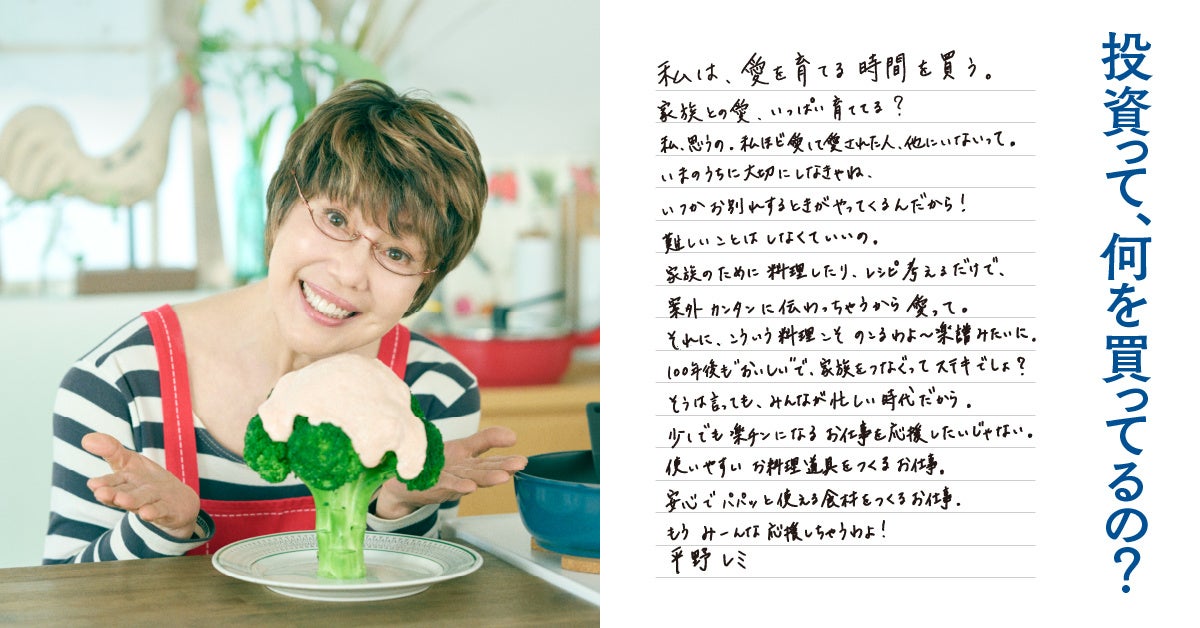 投資って、何を買ってるの？
私は、愛を育てる時間を買う。
家族との愛、いっぱい育ててる？
私、思うの。私ほど愛して愛された人、他にいないって。
いまのうちに大切にしなきゃね、
いつかお別れするときがやってくるんだから！
難しいことはしなくていいの。
家族のために料理したり、レシピ考えるだけで、
案外カンタンに伝わっちゃうから愛って。
それに、こういう料理こそのこるわよ〜楽譜みたいに。
100年後も"おいしい"で、家族をつなぐってステキでしょ？
そうは言っても、みんなが忙しい時代だから。
少しでも楽チンになるお仕事を応援したいじゃない。
使いやすいお料理道具をつくるお仕事。
安心でパパッと使える食材をつくるお仕事。
もうみーんな応援しちゃうわよ！
平野レミ